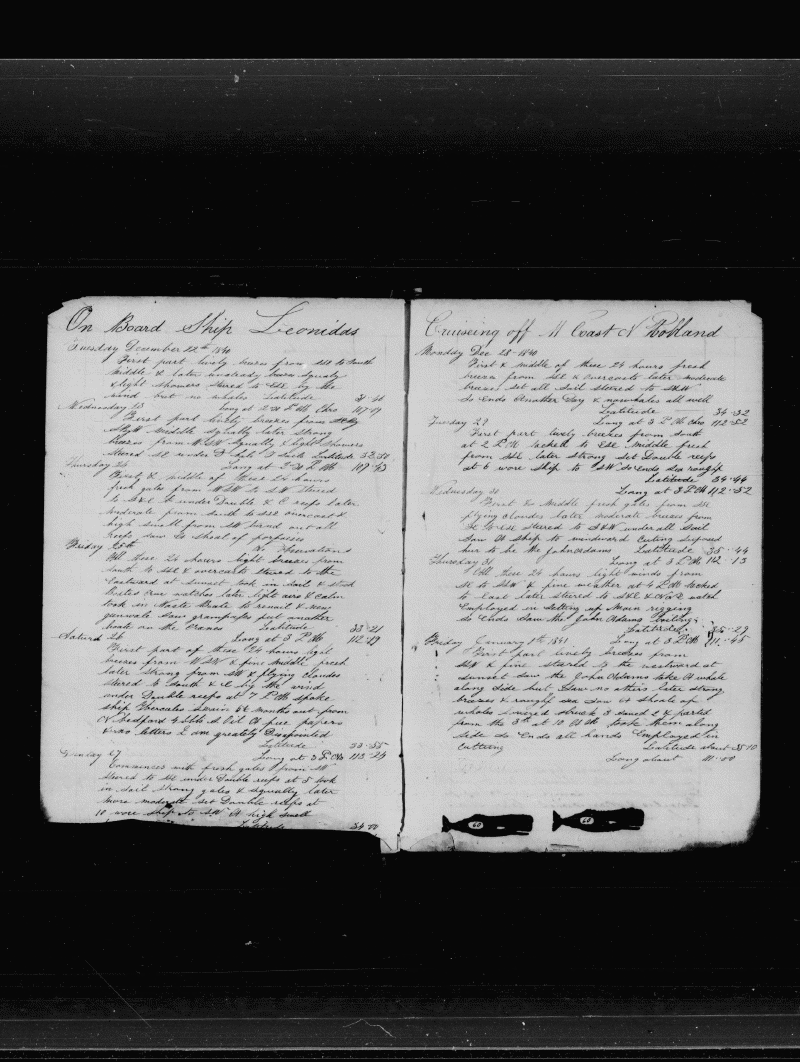 On Board Ship Leonidas
Tuesday December 22th 1840
First part lively breeses from SSE to South
Middle & later unsteady breeses squaly
& light showers stered to ESE by the
wind but no whales Latitude 31-40
Wednesday 23 Long at 2 P M Chro 107-09
First part lively breeses from
Middle squally later strong
breeses from WSW squally & light showers
stered SE under D Latitude 32-50
Thursday 24 Long at 2 P M 109-43
First & middle of these 24 hours
fresh gales from WSW to SW stered
to SSE under Double & C reefs later
moderate from south to SSE overcast &
high swell from SW wind out all
reefs saw A shoal of porpoises
Friday 25th No Observations
All these 24 hours light breeses from
south to SSE & overcast stered to the
Eastward at sunset took in sail & stood
watches later light airs & Calm
took in to repair & new
gunwale saw grampuses put another
boat on the Cranes Latitude 33-21
Saturd 26 Long at 3 P M 112-29
First part of these 24 hours light
breeses from WSW & fine Middle fresh
later strong from SW & flying cloudes
stered to South & E by the wind
under Double reefs at 7 P M spoke
ship Hercules months out from
N bedford Oil A few papers
& no letters I am greatly Disapointed
Latitude 33-55
Sunday 27 Long at 3 P M Chro 113-24
Comences with fresh gales from SW
Stered to SE under Double reefs at 5 took
in sail strong gales & squally later
More moderate set Double reefs at
10 wore ship to SW A high swell
Latitude 34-00
Cruiseing off W Coast N Holland
Monday Dec 28-1840
First & middle of these 24 hours fresh
breeses from SSE & overcast later moderate
breeses set all sail stered to SSW
So Ends Another Day & no whales all well
Latitude 34-32
Tuesday 29 Long at 3 P M Chro 112-52
First part lively breeses from South
at 2 P M tacked to ESE middle fresh
from SSE later strong set Double reefs
at 6 wore ship to SW So Ends sea rough
Latitude 34-44
Wednesday 30 Long at 3 P M 112-52
First & Middle fresh gales from SSE
flying cloudes later moderate breeses from
SE to ESE stered to SSW under all sail
Saw A ship to windward Cuting suposed
her to be the John Adams Latitude 35-44
Thursday 31 Long at 3 P M 112-13
All these 24 hours light winds from
SE to SSW & fine weather at 4 P M tacked
to East later stered to SSE
Employed in setting up Main rigging
So Ends Saw the John Adams boiling
Latitude 35-29
Friday January 1th 1841 Long at 3 P M 111-45
First part lively breeses from
SSW & fine stered to the westward at
sunset saw the John Adams take A whale
along side but Saw no others later strong
breeses & rought sea saw A Shoale of
whales lowered struck 3 saved 2 & parted
from the 3th at 10 A M took them along
side So Ends all hands Employed in
Cutting Latitude about 35 10
Long about 111-00
60
60